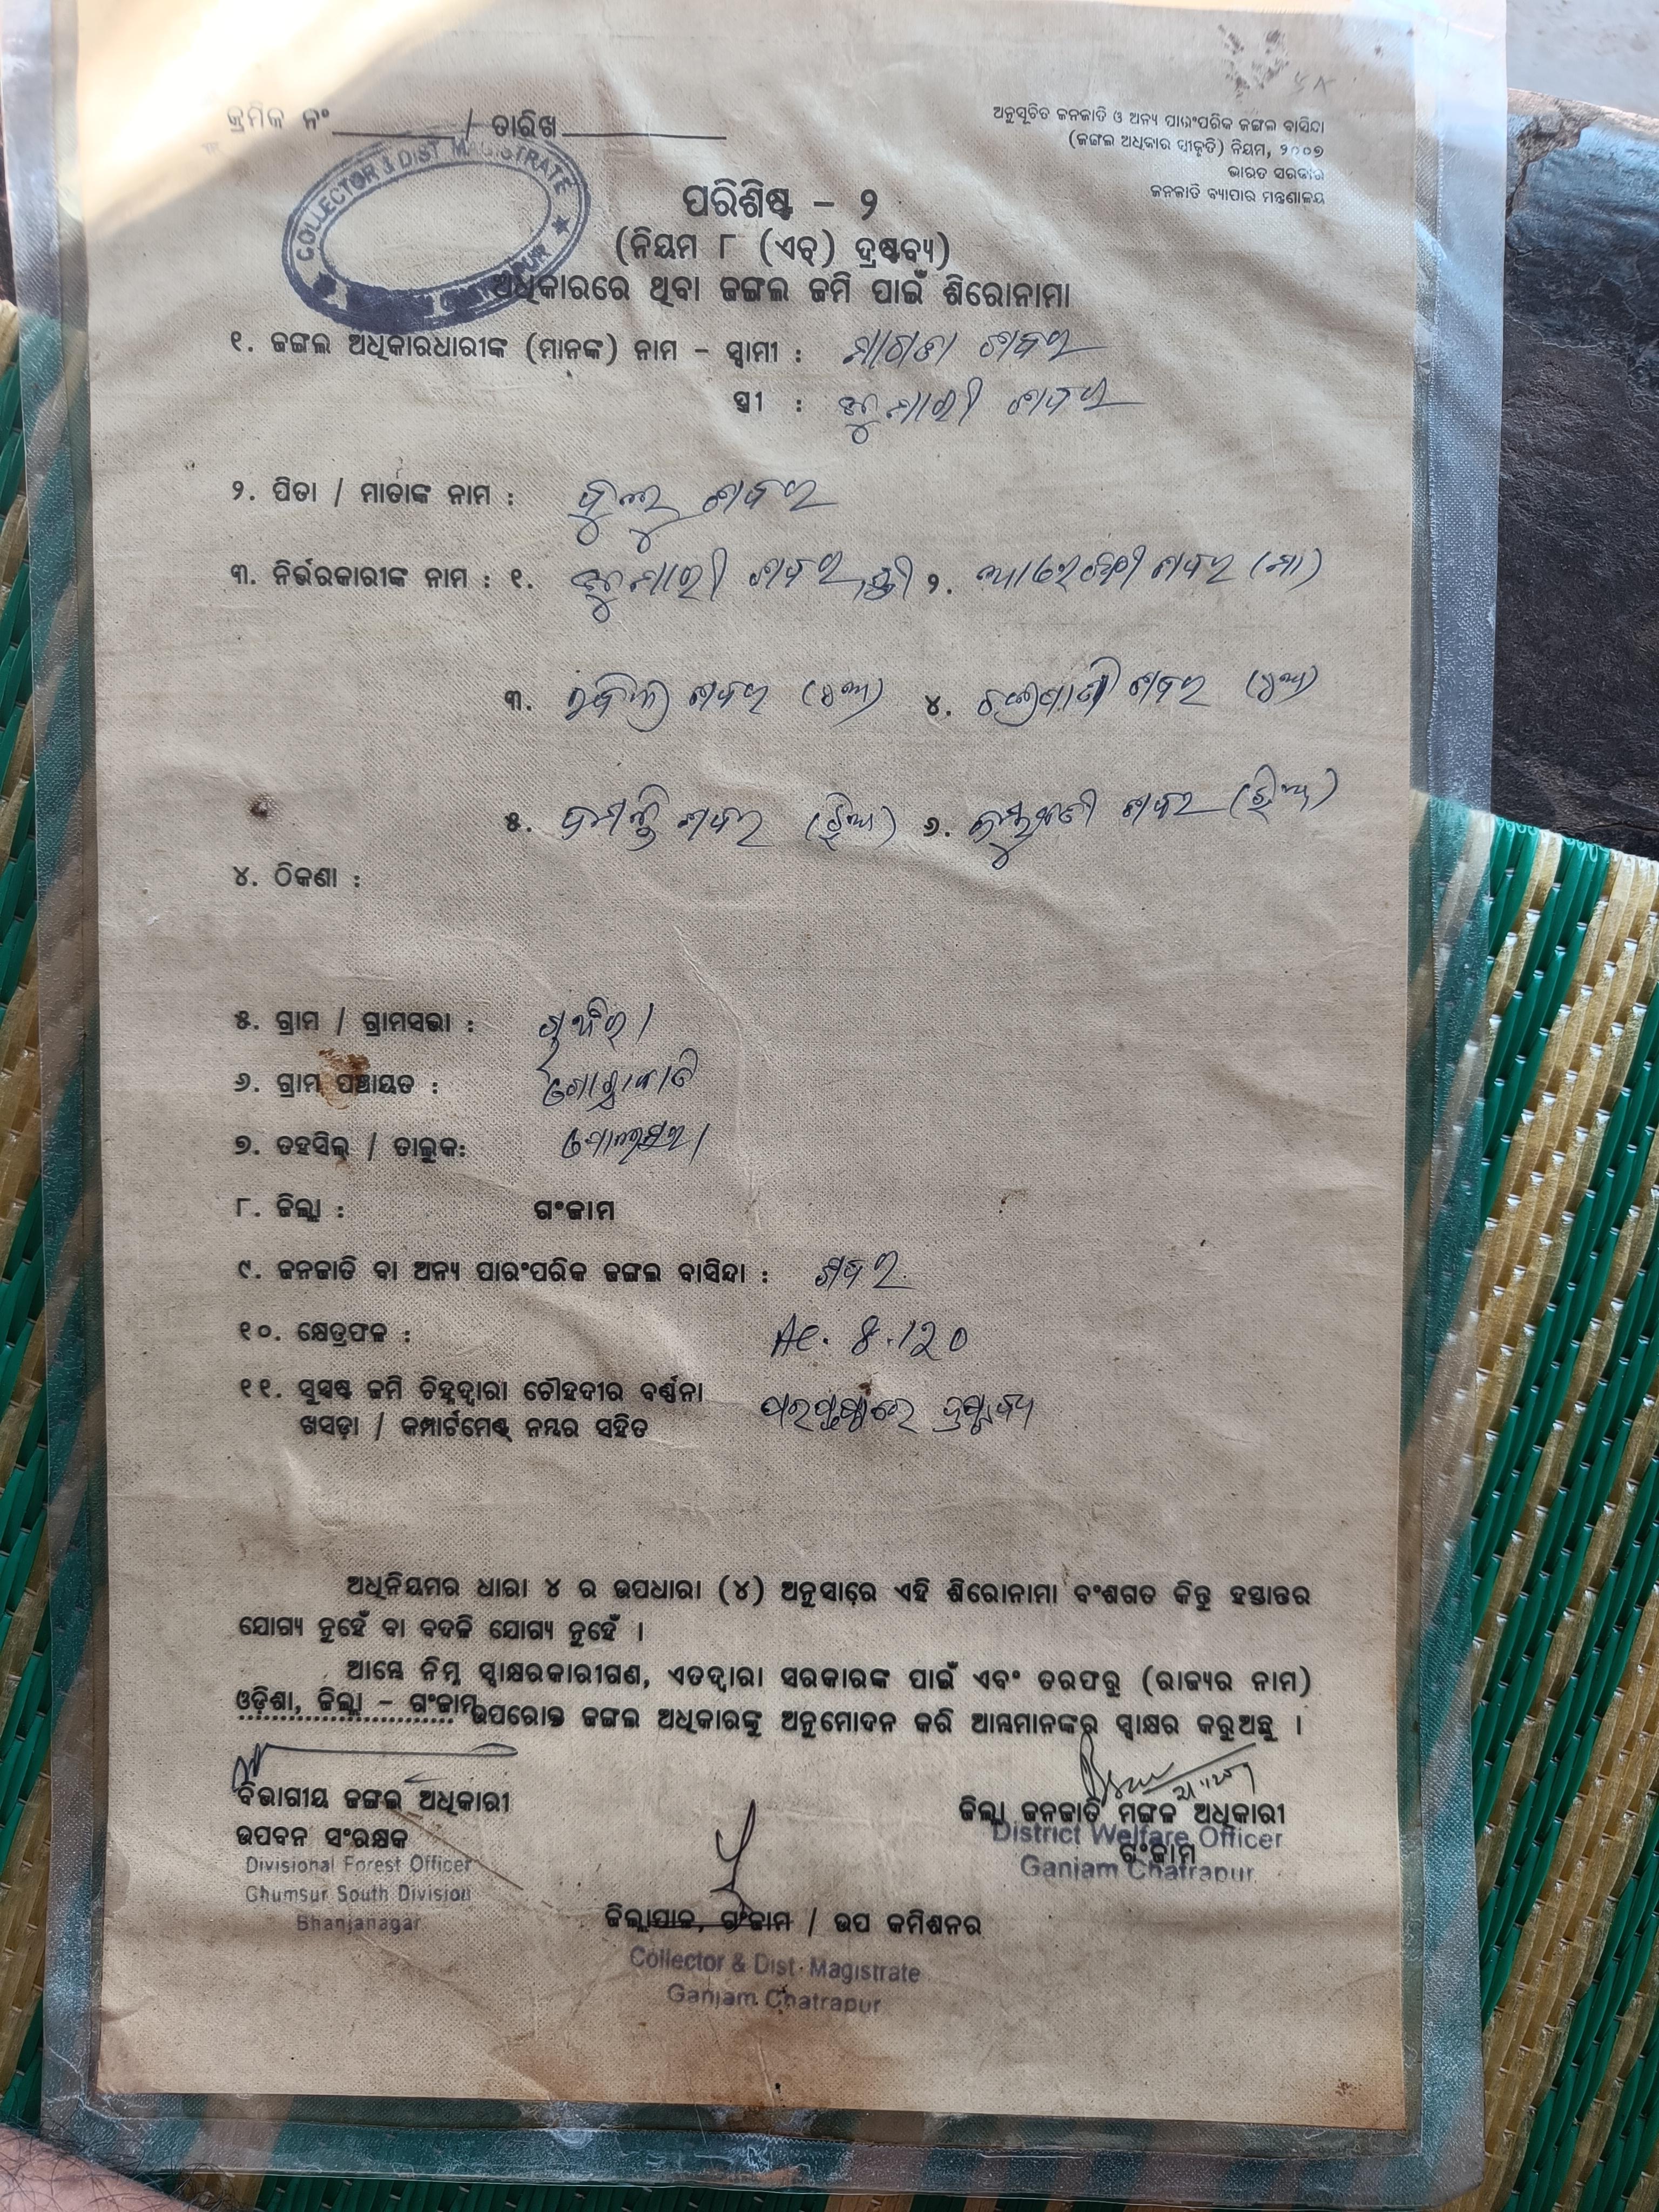 କ୍ରମିକ ନଂ / ତାରିଖ
ଅନୁସୂଚିତ ଜନଜାତି ଓ ଅନ୍ୟ ପାରଂପରିକ ଜଙ୍ଗଲ ବାସିନ୍ଦା
(ଜଙ୍ଗଲ ଅଧିକାର ସ୍ୱୀକୃତି) ନିୟମ, ୨୦୦୭
ଭାରତ ସରକାର
ଜନଜାତି ବ୍ୟାପାର ମନ୍ତ୍ରଣାଳୟ
COLLECTOR & DIST MAGISTRATE
ପରିଶିଷ୍ଟ - ୨
(ନିୟମ ୮ (ଏଚ୍) ଦ୍ରଷ୍ଟବ୍ୟ)
ଅଧିକାରରେ ଥିବା ଜଙ୍ଗଲ ଜମି ପାଇଁ ଶିରୋନାମା
୧. ଜଙ୍ଗଲ ଅଧିକାରଧାରୀଙ୍କ (ମାନଙ୍କ) ନାମ - ସ୍ୱାମୀ : ଶବର
ସ୍ତ୍ରୀ : ଝୁମାରୀ ଶବର
୨. ପିତା / ମାତାଙ୍କ ନାମ : ଶବର
୩. ନିର୍ଭରକାରୀଙ୍କ ନାମ : ୧. ଝୁମାରୀ ଶବର, ସ୍ତ୍ରୀ ୨. ଶବର (ମା)
୩. ଶବର (ପୁଅ) ୪. ଶବର (ପୁଅ)
୫. ଶବର (ଝିଅ) ୬. ଶବର (ଝିଅ)
୪. ଠିକଣା :
୫. ଗ୍ରାମ / ଗ୍ରାମସଭା :
୬. ଗ୍ରାମ ପଞ୍ଚାୟତ :
୭. ତହସିଲ୍ / ତାଲୁକ: ପୋଲସରା
୮. ଜିଲ୍ଲା : ଗଂଜାମ
୯. ଜନଜାତି ବା ଅନ୍ୟ ପାରଂପରିକ ଜଙ୍ଗଲ ବାସିନ୍ଦା : ଶବର
୧୦. କ୍ଷେତ୍ରଫଳ : Ac. 8.120
୧୧. ସୁସ୍ପଷ୍ଟ ଜମି ଚିହ୍ନଦ୍ୱାରା ଚୌହଦୀର ବର୍ଣ୍ଣନା
ଖସଡ଼ା / କମ୍ପାର୍ଟମେଣ୍ଟ୍ ନମ୍ବର ସହିତ ପରପୃଷ୍ଠାରେ ଦ୍ରଷ୍ଟବ୍ୟ
ଅଧିନିୟମର ଧାରା ୪ ର ଉପଧାରା (୪) ଅନୁସାରେ ଏହି ଶିରୋନାମା ବଂଶଗତ କିନ୍ତୁ ହସ୍ତାନ୍ତର
ଯୋଗ୍ୟ ନୁହେଁ ବା ବଦଳି ଯୋଗ୍ୟ ନୁହେଁ ।
ଆମ୍ଭେ ନିମ୍ନ ସ୍ୱାକ୍ଷରକାରୀଗଣ, ଏତଦ୍ୱାରା ସରକାରଙ୍କ ପାଇଁ ଏବଂ ତରଫରୁ (ରାଜ୍ୟର ନାମ)
ଓଡ଼ିଶା, ଜିଲ୍ଲା - ଗଂଜାମ ଉପରୋକ୍ତ ଜଙ୍ଗଲ ଅଧିକାରଙ୍କୁ ଅନୁମୋଦନ କରି ଆମ୍ଭମାନଙ୍କର ସ୍ୱାକ୍ଷର କରୁଅଛୁ ।
ବିଭାଗୀୟ ଜଙ୍ଗଲ ଅଧିକାରୀ
ଉପବନ ସଂରକ୍ଷକ
Divisional Forest Officer
Ghumsur South Division
Bhanjanagar
ଜିଲ୍ଲା ଜନଜାତି ମଙ୍ଗଳ ଅଧିକାରୀ
District Welfare Officer
ଗଂଜାମ
Ganjam Chatrapur
ଜିଲ୍ଲାପାଳ, ଗଂଜାମ / ଉପ କମିଶନର
Collector & Dist. Magistrate
Ganjam. Chatrapur